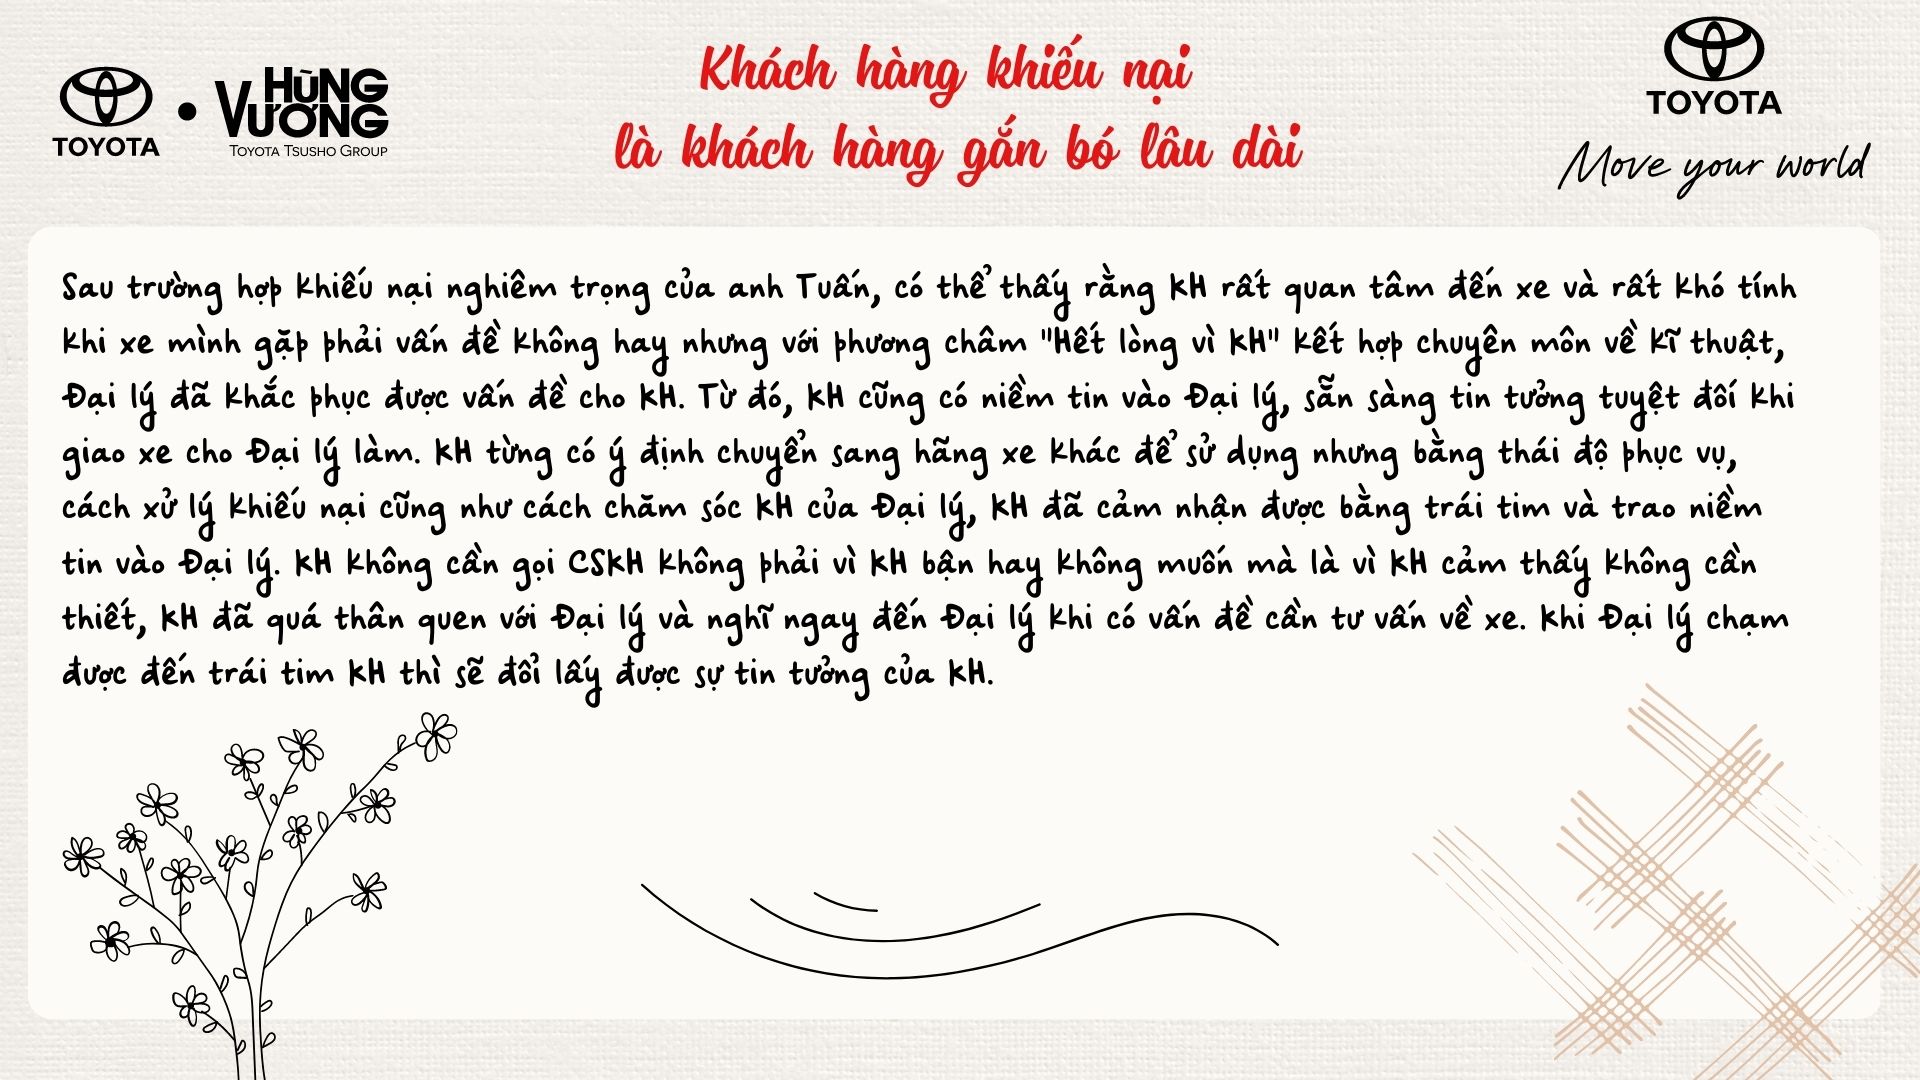 Khách hàng khiếu nại
là khách hàng gắn bó lâu dài
TOYOTA
HÙNG
VƯƠNG
TOYOTA TSUSHO GROUP
TOYOTA
Move your world
Sau trường hợp khiếu nại nghiêm trọng của anh Tuấn, có thể thấy rằng KH rất quan tâm đến xe và rất khó tính
khi xe mình gặp phải vấn đề không hay nhưng với phương châm "Hết lòng vì KH" kết hợp chuyên môn về kĩ thuật,
Đại lý đã khắc phục được vấn đề cho KH. Từ đó, KH cũng có niềm tin vào Đại lý, sẵn sàng tin tưởng tuyệt đối khi
giao xe cho Đại lý làm. KH từng có ý định chuyển sang hãng xe khác để sử dụng nhưng bằng thái độ phục vụ,
cách xử lý khiếu nại cũng như cách chăm sóc KH của Đại lý, KH đã cảm nhận được bằng trái tim và trao niềm
tin vào Đại lý. KH không cần gọi CSKH không phải vì KH bận hay không muốn mà là vì KH cảm thấy không cần
thiết, KH đã quá thân quen với Đại lý và nghĩ ngay đến Đại lý khi có vấn đề cần tư vấn về xe. Khi Đại lý chạm
được đến trái tim KH thì sẽ đổi lấy được sự tin tưởng của KH.